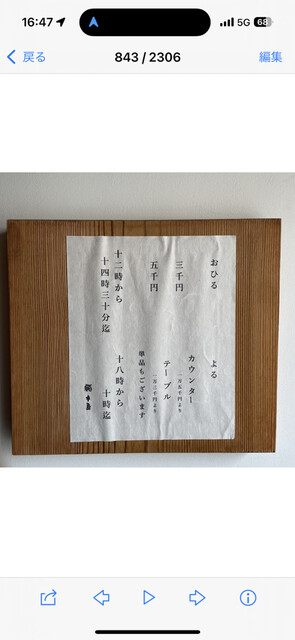 16:47
5G
68
戻る
843 / 2306
編集
おひる
三千円
五千円
十二時から
十四時三十分迄
よる
カウンター
一万五千円より
テーブル
一万三千円より
単品もございます
十八時から
十時迄